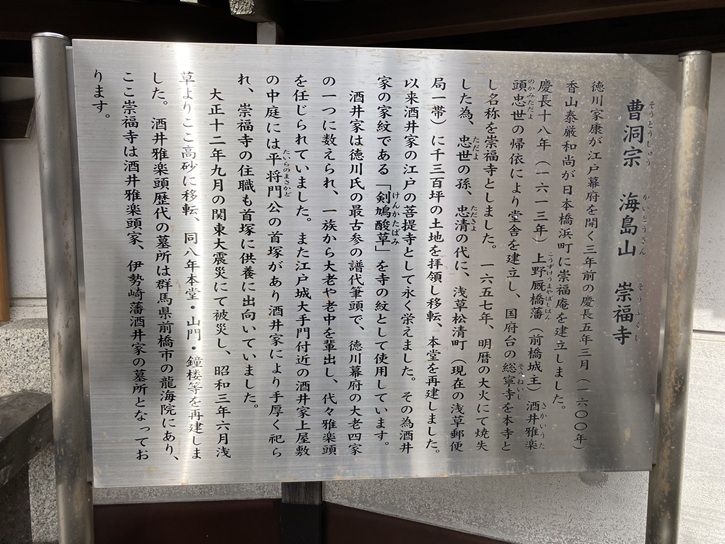 曹洞宗 海島山 崇福寺
そうとうしゅう かいとうさん そうふくじ
徳川家康が江戸幕府を開く三年前の慶長五年三月(一六〇〇年)
香山泰厳和尚が日本橋浜町に崇福庵を建立しました。
慶長十八年(一六一三年)上野厩橋藩(前橋城主)酒井雅楽
こうずけうまやばしはん さかいうた
頭忠世の帰依により堂舎を建立し、国府台の総寧寺を本寺と
のかみただよ そうねいじ
し名称を崇福寺としました。一六五七年、明暦の大火にて焼失
した為、忠世の孫、忠清の代に、浅草松清町(現在の浅草郵便
ただよ ただきよ
局一帯)に千三百坪の土地を拝領し移転、本堂を再建しました。
以来酒井家の江戸の菩提寺として永く栄えました。その為酒井
家の家紋である「剣鳩酸草」を寺の紋として使用しています。
けんかたばみ
酒井家は徳川氏の最古参の譜代筆頭で、徳川幕府の大老四家
の一つに数えられ、一族から大老や老中を輩出し、代々雅楽頭
を任じられていました。また江戸城大手門付近の酒井家上屋敷
の中庭には平将門公の首塚があり酒井家により手厚く祀ら
たいらのまさかど
れ、崇福寺の住職も首塚に供養に出向いていました。
大正十二年九月の関東大震災にて被災し、昭和三年六月浅
草よりここ高砂に移転、同八年本堂・山門・鐘楼等を再建しま
した。酒井雅楽頭歴代の墓所は群馬県前橋市の龍海院にあり、
ここ崇福寺は酒井雅楽頭家、伊勢崎藩酒井家の墓所となってお
ります。